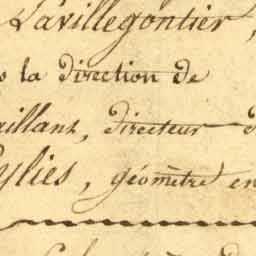 Lavillegontier,
la direction de
aillant, directeur d
ylies, géomètre en